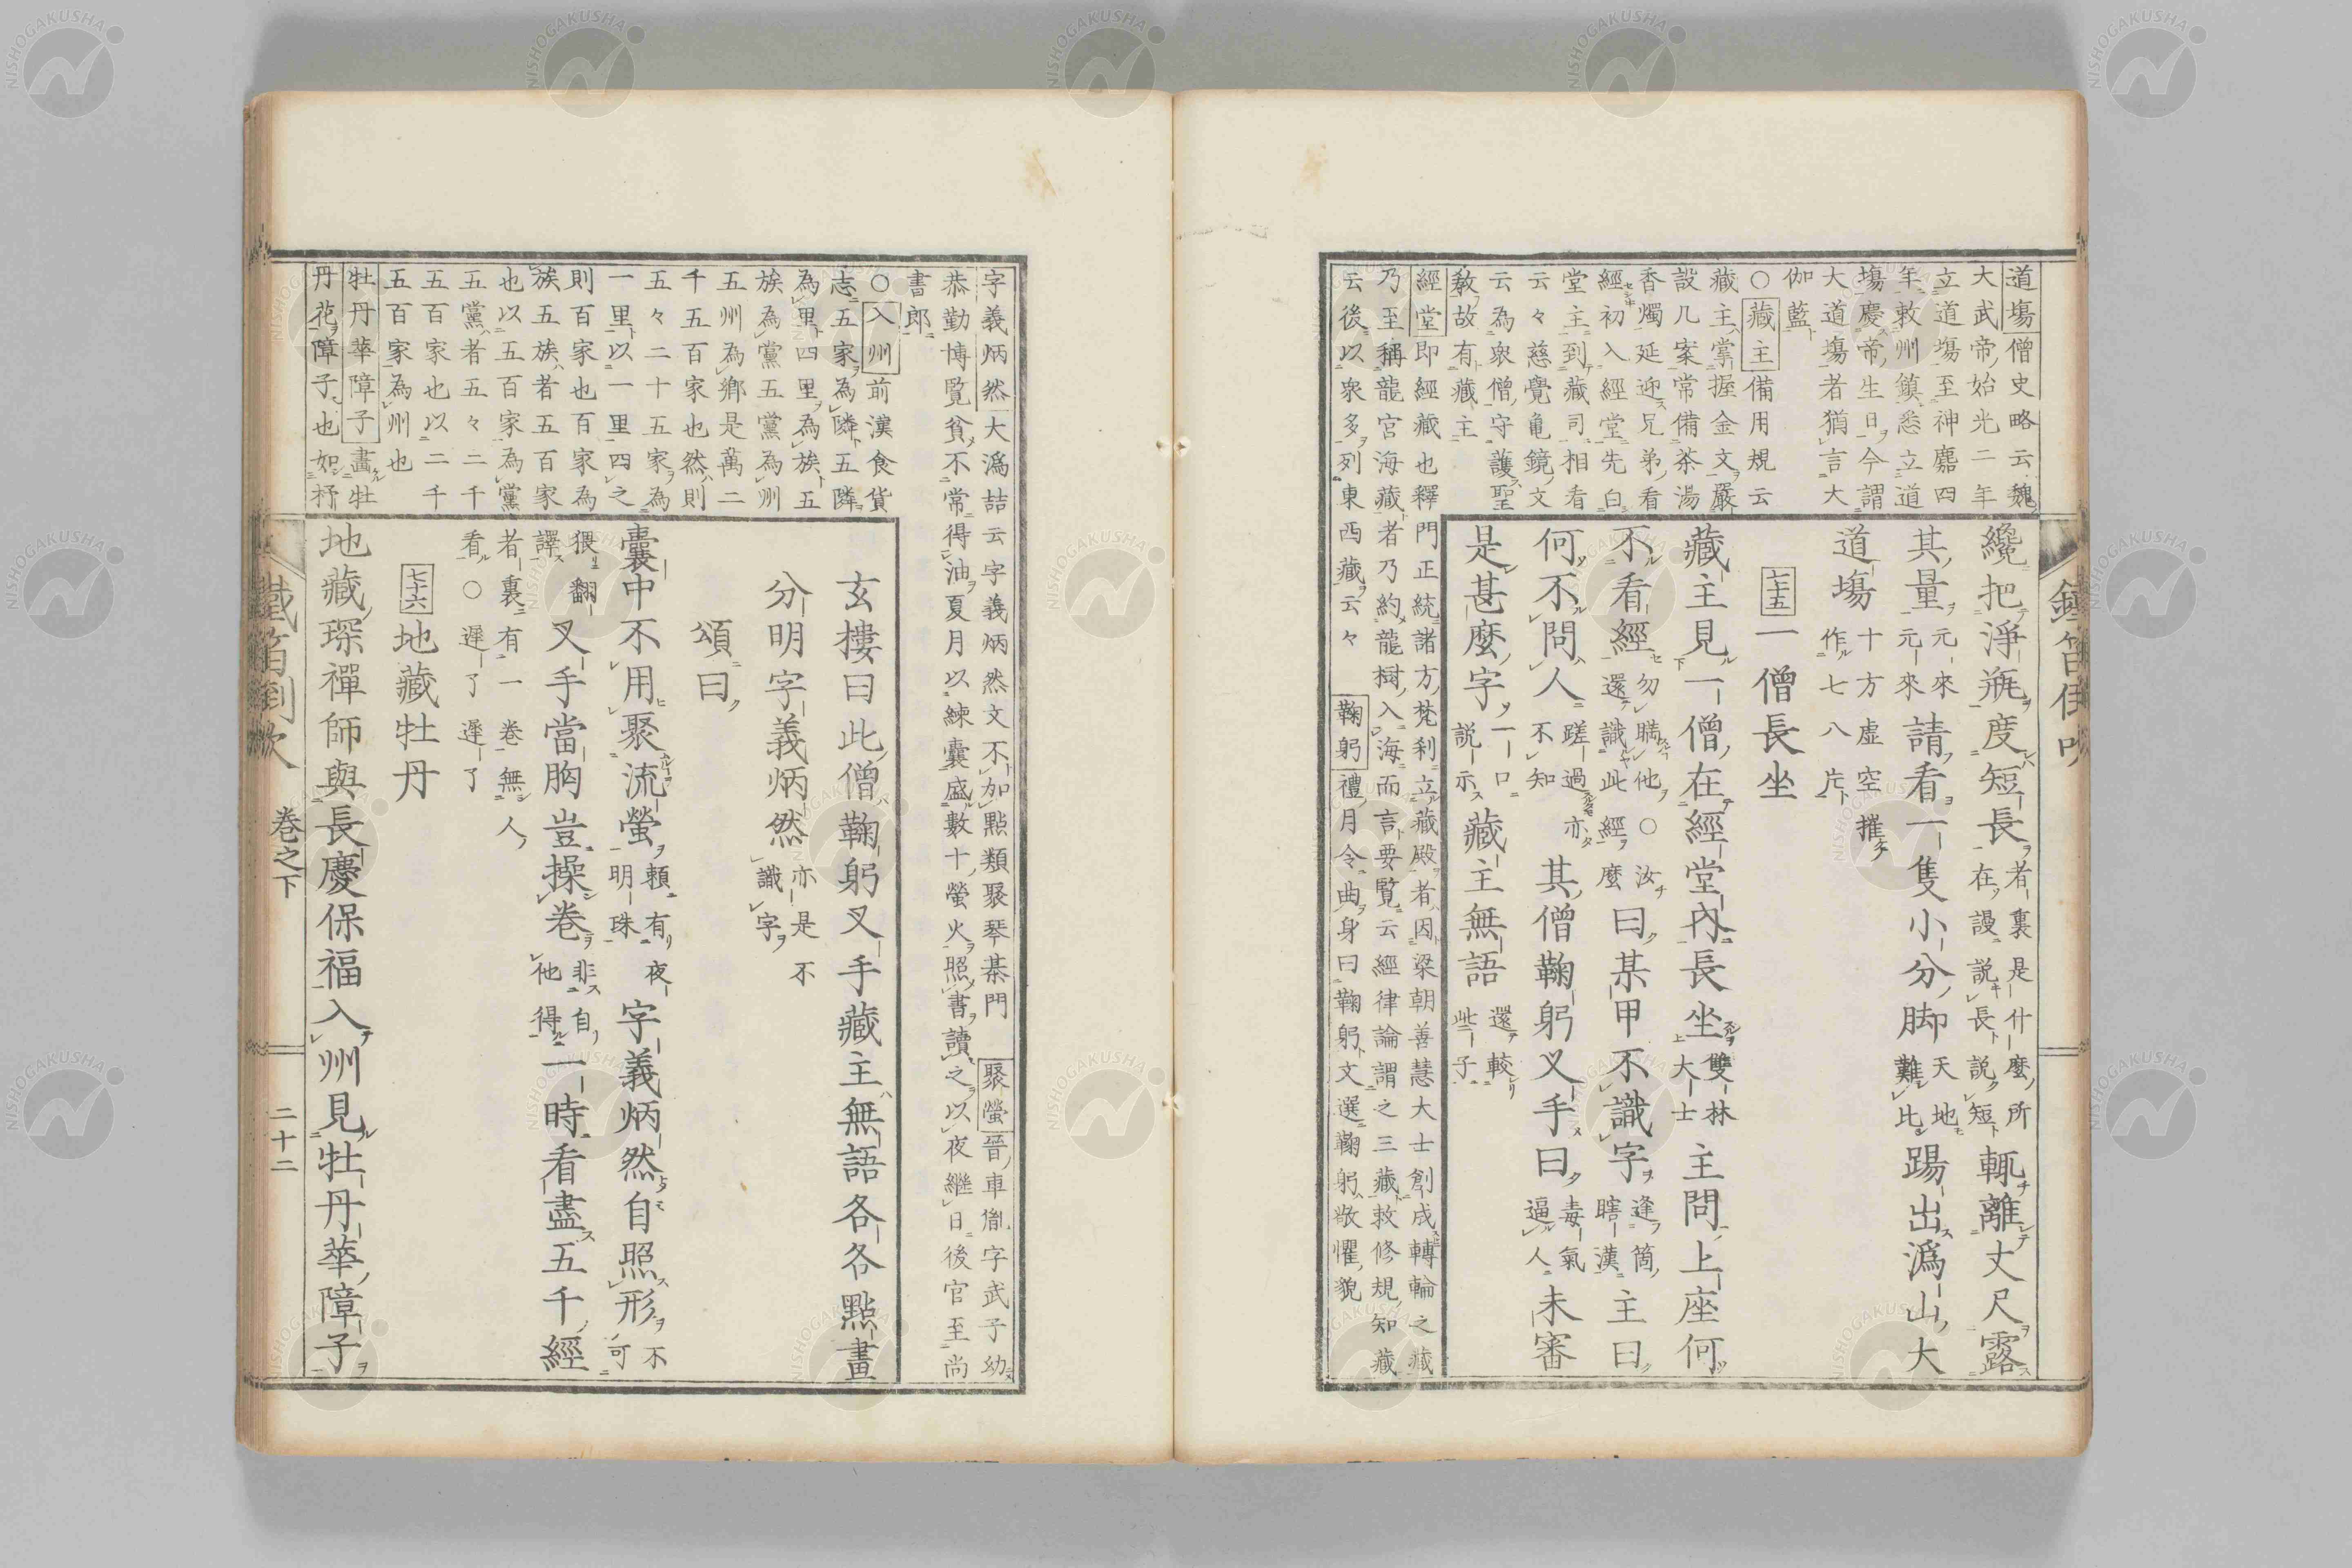 道場僧史略云魏
大武帝始光二年
立道場至神䴥四
年敕州鎮悉立道
場慶帝生日今謂
大道場者猶言大
伽藍
○藏主備用規云
藏主掌握金文嚴
設几案常備茶湯
香燭延迎兄弟看
經初入經堂先白
堂主到藏司相看
云々慈覺龜鏡文
云為衆僧守護聖
敎故有藏主
經堂即經藏也釋門正統諸方梵刹立藏殿者因梁朝善慧大士創成轉輪之藏
乃至稱龍宮海藏者乃約龍樹入海而言要覧云經律論謂之三藏敕修規知藏
云後以衆多列東西藏云々 鞠躬禮月令曲身曰鞠躬文選鞠躬敬懼貌
纔把淨瓶度短長者裏是什麼所在謾說長說短輒離丈尺露
其量元來元來請看一隻小分脚天地難比踢出潙山大
道場十方虛空摧作七八片
七十五 一僧長坐
藏主見一僧在經堂內長坐雙林大士主問上座何
不看經勿瞞他○汝還識此經麼曰某甲不識字逢箇瞎漢主曰
何不問人蹉過亦不知其僧鞠躬叉手曰毒氣逼人未審
是甚麼字一口説示藏主無語還較此子
字義炳然大潙喆云字義炳然文不加點類聚琴棊門 聚螢晉車胤字武子幼
恭勤博覽貧不常得油夏月以練囊盛數十螢火照書讀之以夜繼日後官至尚
書郎
○入州前漢食貨
志五家為隣五隣
為里四里為族五
族為黨五黨為州
五州為鄉是萬二
千五百家也然則
五々二十五家為
一里以一里四之
則百家也百家為
族五族者五百家
也以五百家為黨
五黨者五々二千
五百家也以二千
五百家為州也
牡丹華障子畵牡
丹花障子也如杼
玄樓曰此僧鞠躬叉手藏主無語各各點畫
分明字義炳然亦是不識字
頌曰
囊中不用聚流螢頼有夜明珠字義炳然自照形不可
猥翻譯叉手當胸豈操卷非自他得一時看盡五千經
者裏有一卷無人
看○遲了遲了
七十六 地藏牡丹
地藏琛禪師與長慶保福入州見牡丹華障子
卷之下
二十二